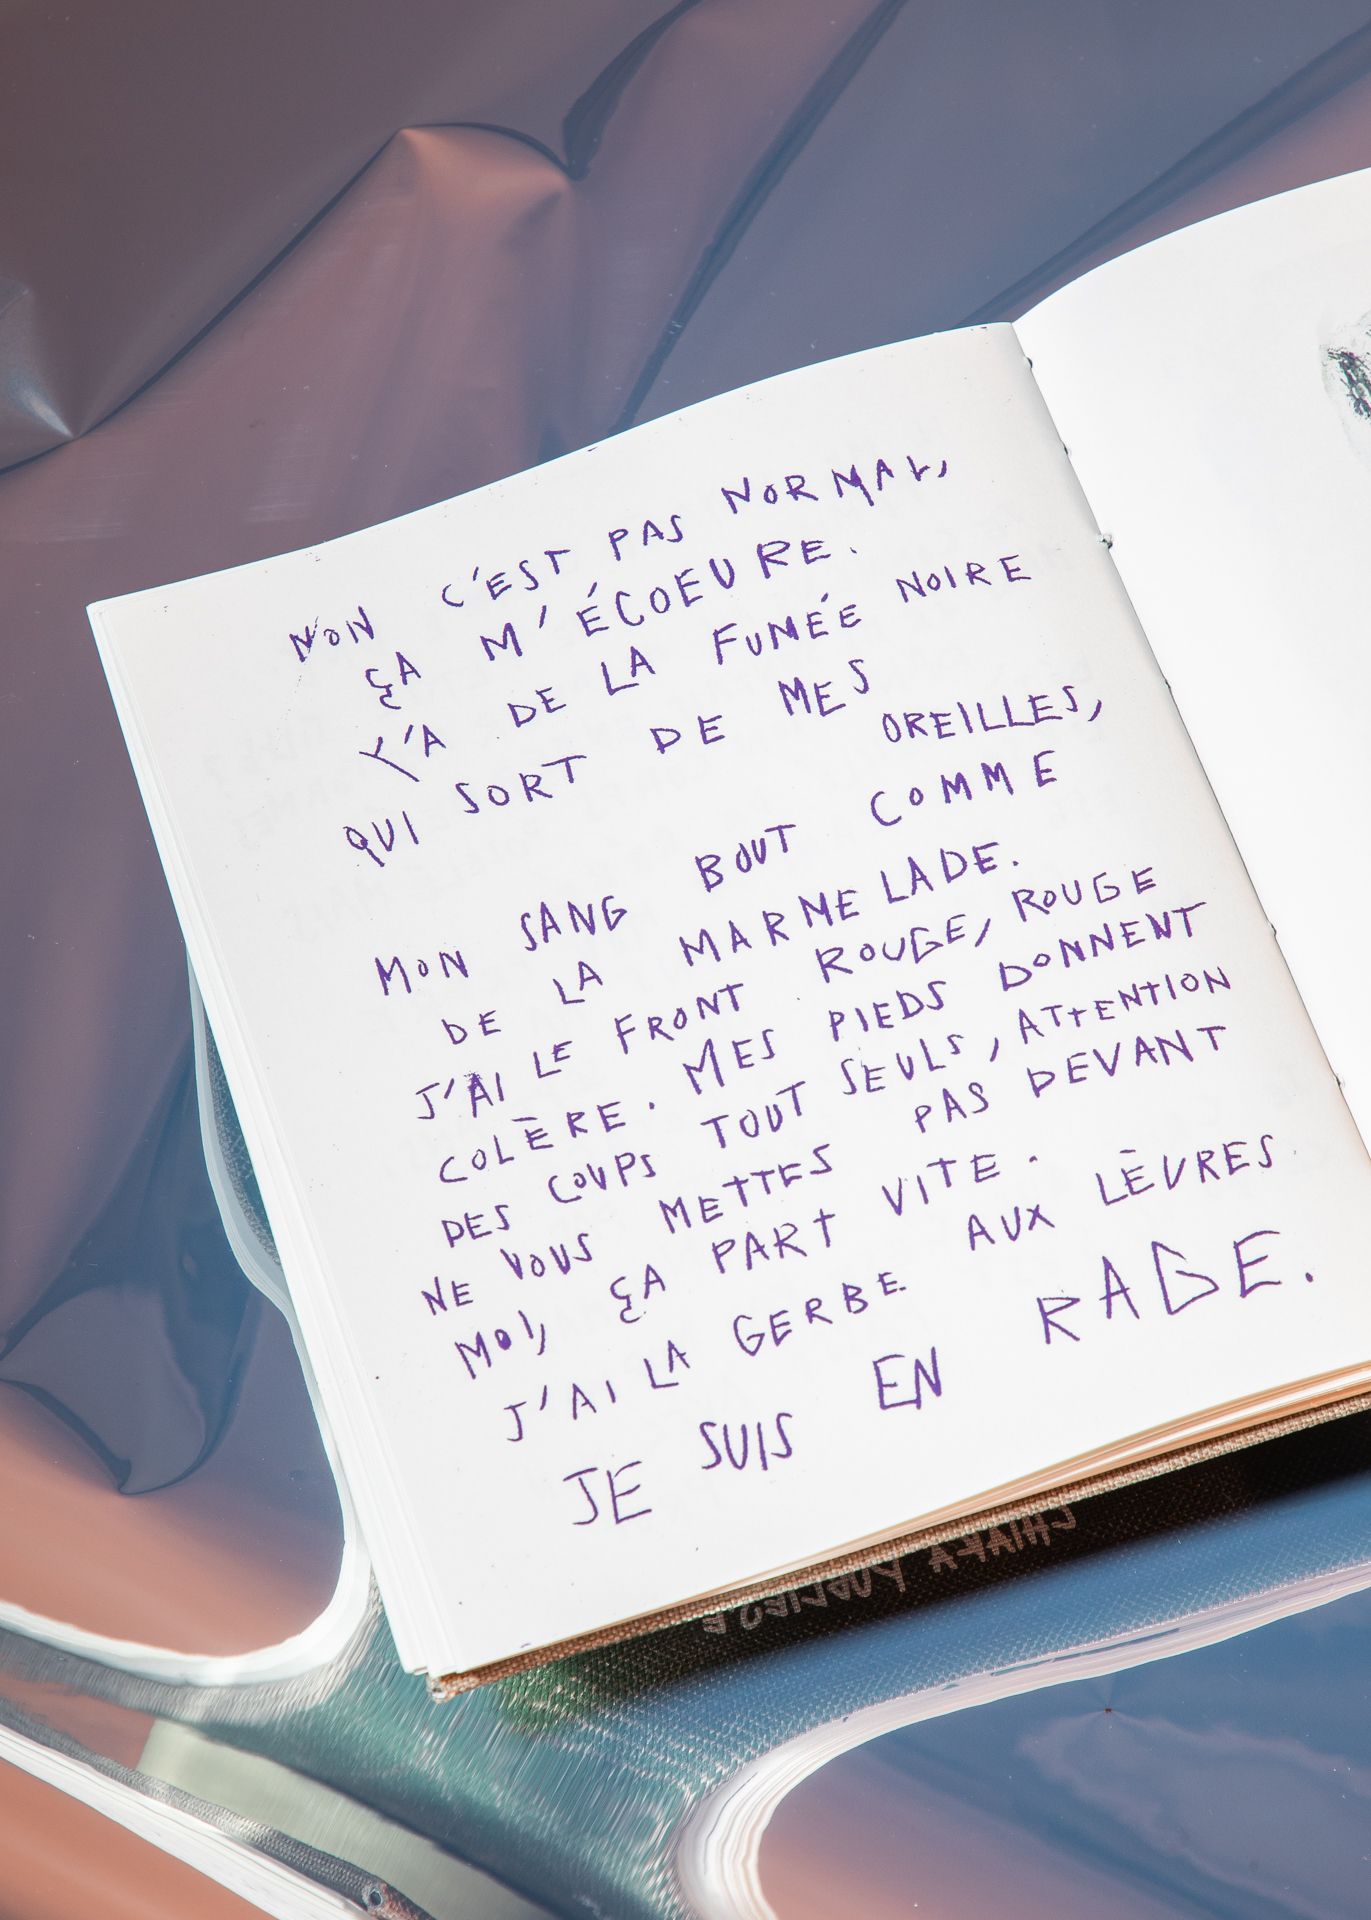 NON C'EST PAS NORMAL,
ÇA M'ÉCOEURE.
Y'A DE LA FUMÉE NOIRE
QUI SORT DE MES
OREILLES,
MON SANG BOUT COMME
DE LA MARMELADE.
J'AI LE FRONT ROUGE, ROUGE
COLÈRE. MES PIEDS DONNENT
DES COUPS TOUT SEULS, ATTENTION
NE VOUS METTES PAS DEVANT
MOI, ÇA PART VITE.
J'AI LA GERBE AUX LÈVRES.
JE SUIS EN RAGE.